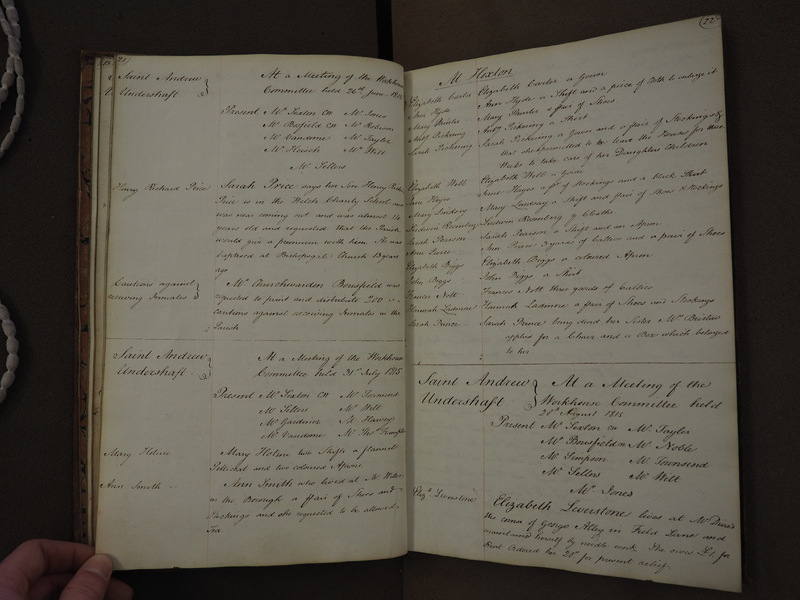 21
Saint Andrew
Undershaft
At a Meeting of the Workhouse
Committee held 26th June 1815
Present Mr Sexton CW Mr Jones
Mr Bousfield CW Mr Robinson
Mr Vandome Mr Tayler
Mr Wilt
Mr Sellers
Henry Richard Price
Sarah Price says her Son Henry Rich
Price is in the Welch Charity School and
was near coming out and was almost 14
years old and requested that the Parish
would give a premium with him He was
baptised at Bishopsgate Church 13 years
ago
Cautions against
receiving Inmates
Mr Churchwarden Bousfield was
requested to print and distribute 200
Cautions against receiving Inmates in the
Parish
Saint Andrew
Undershaft
At a Meeting of the Workhouse
Committee held 31st July 1815
Present Mr Sexton CW Mr Townsend
Mr Sellers Mr Wilt
Mr Gardener Mr Harvey
Mr Vandome Mr Thos
Mary Holme
Mary Holme two Shifts a flannel
Petticoat and two coloured Aprons
Ann Smith
Ann Smith who lived at Mr
in the Borough a pair of Shoes and
Stockings and she requested to be allowed
Tea
22
At Hoxton
Elizabeth Carter Elizabeth Carter a Gown
Ann Hyde Ann Hyde a Shift and a piece of Cloth to enlarge it
Mary Hunter Mary Hunter a pair of Shoes
Pickering a Shirt
Sarah Pickering Sarah Pickering a Gown and a pair of Stockings &
that she permitted to be leave the House for three
Weeks to take care of her Daughters Children
Elizabeth Webb Elizabeth Webb a Gown
Jane Hayes Jane Hayes a pr of Stockings and a black Skirt
Mary Lindsey Mary Lindsey a Shift and pair of Shoes & Stockings
Sarah Pearson Sarah Pearson a Shift and an Apron
Ann Pierce Ann Pierce 3 yards of Callico and a pair of Shoes
Elizabeth Biggs Elizabeth Biggs a coloured Apron
John Biggs John Biggs a Shirt
Frances Nott Frances Nott three yards of Callico
Hannah Ladmore Hannah Ladmore a pair of Shoes and Stockings
Sarah Prince Sarah Prince being dead her Sister Mrs
applies for a Chair and a Box which belonged
to her
Saint Andrew
Undershaft
At a Meeting of the
Workhouse Committee held
28th August 1815
Present Mr Sexton CW Mr Tayler
Mr Bousfield CW Mr Noble
Mr Simpson Mr Townsend
Mr Sellers Mr Wilt
Mr Jones
Elizth Leverstone
Elizabeth Leverstone lives at Mr
the corner of George Alley in Field Lane and
maintains herself by needle work She owes for
Rent Ordered her 20s for present relief